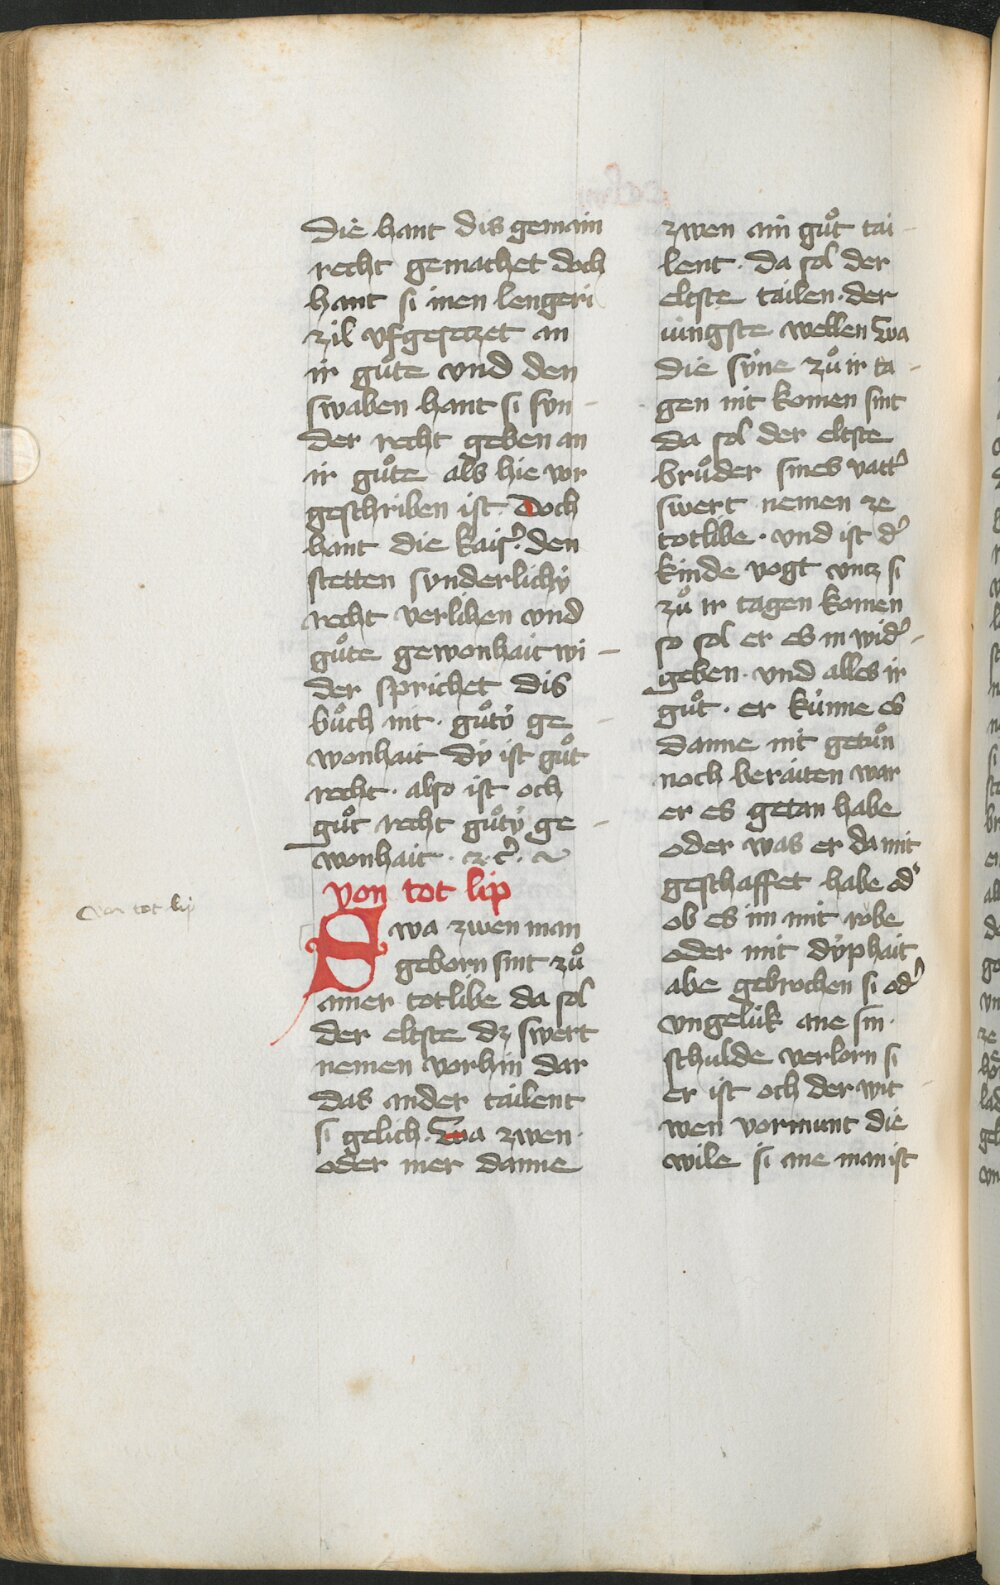 Die hant dis gemain
recht gemachet doch
hant si inen lengeri
zil vfgesetzet an
ir guͦte vnd den
swaben hant si syn-
der recht geben an
ir guͦte als hie vor
geschriben ist. Doch
hant die kais͛. den
stetten synderlichÿ
recht verlihen vnd
guͦte gewonhait wi-
der sprichet dis
buͦch nit. guͦtÿ ge-
wonhait dÿ ist guͦt
recht. also ist och
guͦt recht guͦtÿ ge-
wonhait. ⁊ c͛.
von tot lip
Swa zwen man
geborn sint zuͦ
ainer totlibe da sol
der eltste dz swert
nemen vorhin dar
das ander tailent
si gelich. Wa zwen
oder mer danne
von tot lip
zwen ain guͦt tai-
lent. da sol der
eltste tailen. der
iungste wellen Wa
die sÿne zuͦ ir ta-
gen nit komen sint
da sol der eltste
bruͦder sines vatt͛
swert nemen ze
totlibe. vnd ist d͛
kinde vogt vntz si
zuͦ ir tagen komen
so sol er es in wid͛-
geben. vnd alles ir
guͦt. er kúnne es
danne nit getuͦn
noch beraiten war
er es getan habe
oder was er da mit
geschaffet habe od͛
ob es im mit robe
oder mit dÿphait
abe gebrochen si od͛
vngelúk ane sin
schulde verlorn si
er ist och der wit-
wen vormunt die
wile si ane man ist